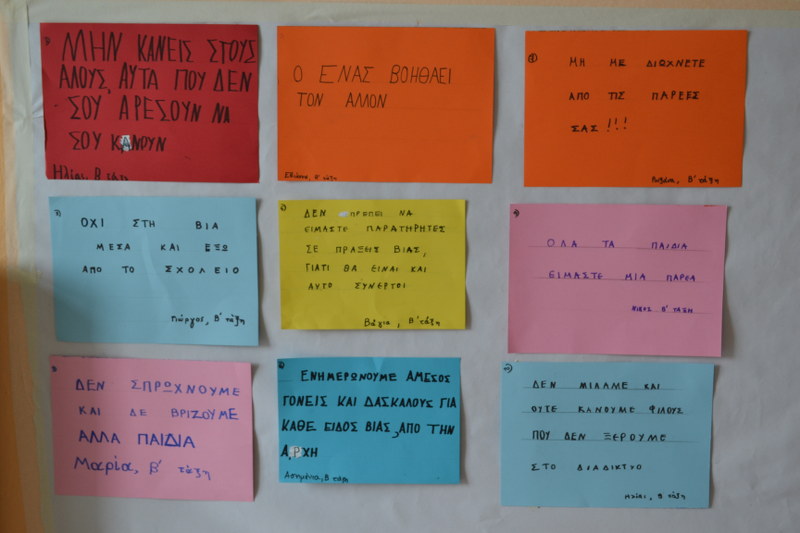 ΜΗΝ ΚΑΝΕΙΣ ΣΤΟΥΣ
ΑΛΟΥΣ, ΑΥΤΑ ΠΟΥ ΔΕΝ
ΣΟΥ ΑΡΕΣΟΥΝ ΝΑ
ΣΟΥ ΚΑΝΟΥΝ
Ηλίας, Β τάξη
Ο ΕΝΑΣ ΒΟΗΘΑΕΙ
ΤΟΝ ΑΛΛΟΝ
τάξη
ΜΗ ΜΕ ΔΙΩΧΝΕΤΕ
ΑΠΟ ΤΙΣ ΠΑΡΕΕΣ
ΣΑΣ !!!
Β΄ τάξη
ΟΧΙ ΣΤΗ ΒΙΑ
ΜΕΣΑ ΚΑΙ ΕΞΩ
ΑΠΟ ΤΟ ΣΧΟΛΕΙΟ
Γιώργος, Β΄ τάξη
ΔΕΝ ΠΡΕΠΕΙ ΝΑ
ΕΙΜΑΣΤΕ ΠΑΡΑΤΗΡΗΤΕΣ
ΣΕ ΠΡΑΞΕΙΣ ΒΙΑΣ,
ΓΙΑΤΙ ΘΑ ΕΙΝΑΙ ΚΑΙ
ΑΥΤΟ ΣΥΝΕΡΓΟΙ
Βάγια, Β΄ τάξη
ΟΛΑ ΤΑ ΠΑΙΔΙΑ
ΕΙΜΑΣΤΕ ΜΙΑ ΠΑΡΕΑ
ΝΙΚΟΣ Β΄ ΤΑΞΗ
ΔΕΝ ΣΠΡΩΧΝΟΥΜΕ
ΚΑΙ ΔΕ ΒΡΙΖΟΥΜΕ
ΑΛΛΑ ΠΑΙΔΙΑ
Μαρία, Β΄ τάξη
ΕΝΗΜΕΡΩΝΟΥΜΕ ΑΜΕΣΟΣ
ΓΟΝΕΙΣ ΚΑΙ ΔΑΣΚΑΛΟΥΣ ΓΙΑ
ΚΑΘΕ ΕΙΔΟΣ ΒΙΑΣ, ΑΠΟ ΤΗΝ
ΑΡΧΗ
Ασημίνα, Β τάξη
ΔΕΝ ΜΙΛΑΜΕ ΚΑΙ
ΟΥΤΕ ΚΑΝΟΥΜΕ ΦΙΛΟΥΣ
ΠΟΥ ΔΕΝ ΞΕΡΟΥΜΕ
ΣΤΟ ΔΙΑΔΙΚΤΥΟ
Ηλίας, Β τάξη